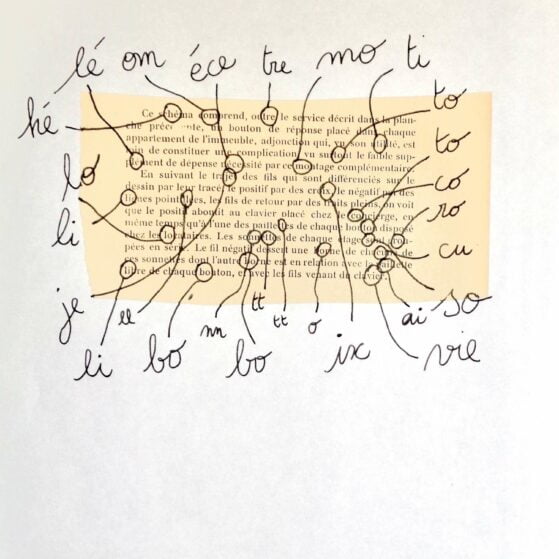 lé om éce tre mo ti
hé
to
Ce schéma comprend, outre le service décrit dans la plan-
che précédente, un bouton de réponse placé dans chaque
appartement de l'immeuble, adjonction qui, vu son utilité, est
loin de constituer une complication, vu surtout le faible sup-
plément de dépense nécessité par ce montage complémentaire.
En suivant le tracé des fils qui sont différenciés sur le
dessin par leur tracé, le positif par des croix, le négatif par des
lignes pointillées, les fils de retour par des traits pleins, on voit
que le positif aboutit au clavier placé chez le concierge, en
même temps qu'à l'une des paillettes de chaque bouton disposé
chez les locataires. Les sonnettes sont
pées en série. Le fil négatif dessert une borne de chacune de
ces sonnettes dont l'autre borne est en relation avec la paillette
libre de chaque bouton, et avec les fils venant du clavier.
to
lo
co
li
ro
cu
je
ll
nn
tt
tt
o
ai
so
li
bo
bo
ix
vie